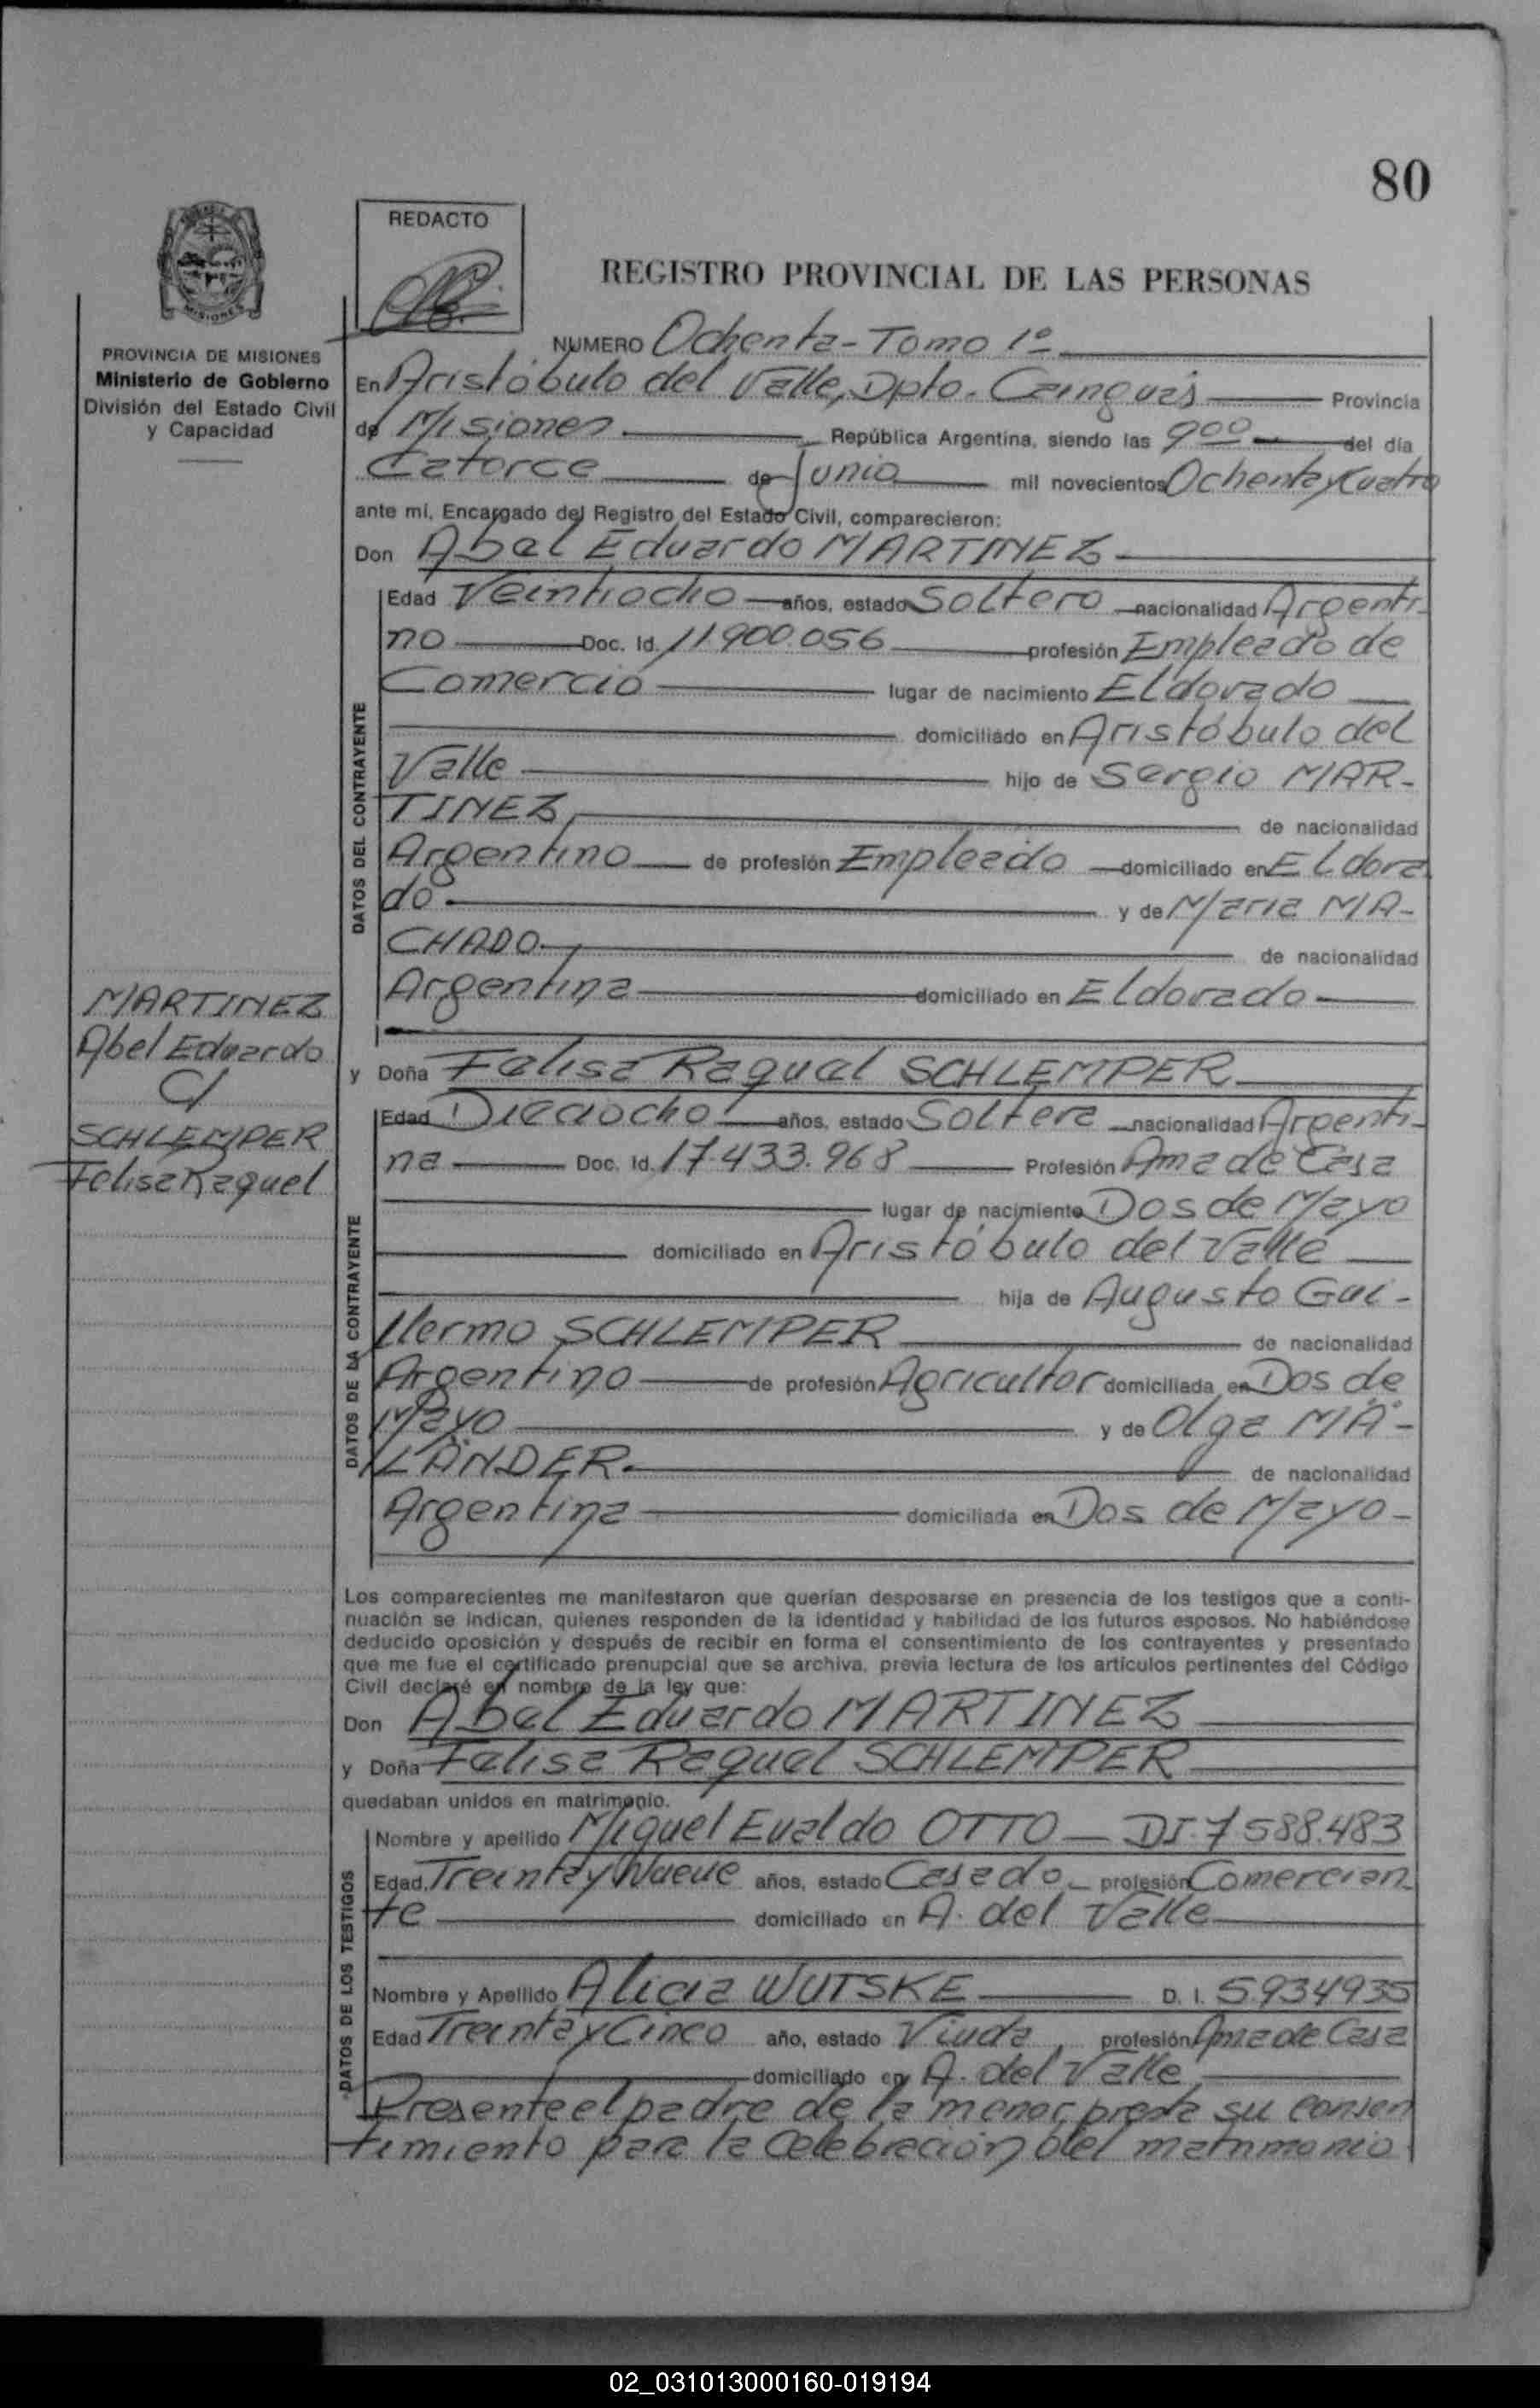 80
REDACTO
REGISTRO PROVINCIAL DE LAS PERSONAS
MISIONES
PROVINCIA DE MISIONES
Ministerio de Gobierno
División del Estado Civil
y Capacidad
NUMERO Ochenta - Tomo 1º
En Aristóbulo del Valle, Dpto. Cainguás Provincia
de Misiones República Argentina, siendo las 900 del día
Catorce de Junio mil novecientos Ochenta y Cuatro
ante mí, Encargado del Registro del Estado Civil, comparecieron:
Don Abel Eduardo MARTINEZ
DATOS DEL CONTRAYENTE
Edad Veintiocho años, estado Soltero nacionalidad Argenti-
no Doc. Id. 11.900.056 profesión Empleado de
Comercio lugar de nacimiento Eldorado
domiciliado en Aristóbulo del
Valle hijo de Sergio MAR-
TINEZ, de nacionalidad
Argentino de profesión Empleado domiciliado en Eldora
do y de Maria MA-
CHADO de nacionalidad
Argentina domiciliado en Eldorado
MARTINEZ
Abel Eduardo
C/
SCHLEMPER
Felisa Raquel
y Doña Felisa Raquel SCHLEMPER
DATOS DE LA CONTRAYENTE
Edad Dieciocho años, estado Soltera nacionalidad Argenti-
na Doc. Id. 17.433.968 Profesión Ama de Casa
lugar de nacimiento Dos de Mayo
domiciliado en Aristóbulo del Valle
hija de Augusto Gui-
llermo SCHLEMPER de nacionalidad
Argentino de profesión Agricultor domiciliada en Dos de
Mayo y de Olga MÄ-
LÄNDER de nacionalidad
Argentina domiciliada en Dos de Mayo-
Los comparecientes me manifestaron que querían desposarse en presencia de los testigos que a conti-
nuación se indican, quienes responden de la identidad y habilidad de los futuros esposos. No habiéndose
deducido oposición y después de recibir en forma el consentimiento de los contrayentes y presentado
que me fue el certificado prenupcial que se archiva, previa lectura de los artículos pertinentes del Código
Civil declaré en nombre de la ley que:
Don Abel Eduardo MARTINEZ
y Doña Felisa Raquel SCHLEMPER
quedaban unidos en matrimonio.
DATOS DE LOS TESTIGOS
Nombre y apellido Miguel Evaldo OTTO - DI. 7588.483
Edad Treinta y Nueve años, estado Casado profesión Comercian
te domiciliado en A. del Valle
Nombre y Apellido Alicia WUTSKE D. I. 5934935
Edad Treinta y Cinco año, estado Viuda, profesión Ama de Casa
domiciliado en A. del Valle
Presente el padre de la menor, presta su consen
timiento para la Celebración del matrimonio
02_031013000160-019194